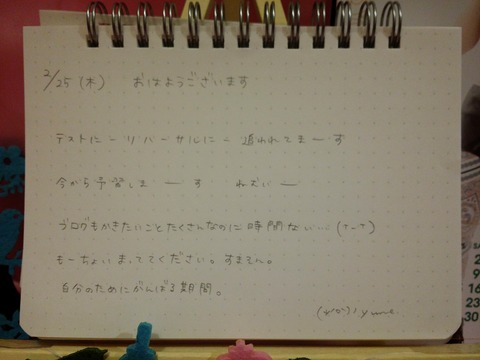 2/25(木) おはようございます
テストにーリハーサルにー追われてまーす
今から予習しまーす ねむいー
ブログもかきたいことたくさんなのに時間ない…(T-T)
もーちょいまっててください。すません。
自分のためにがんばる期間。
yume
2
9
16
23
30